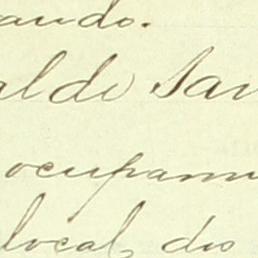 ando.
al de San
ocupam
local, do